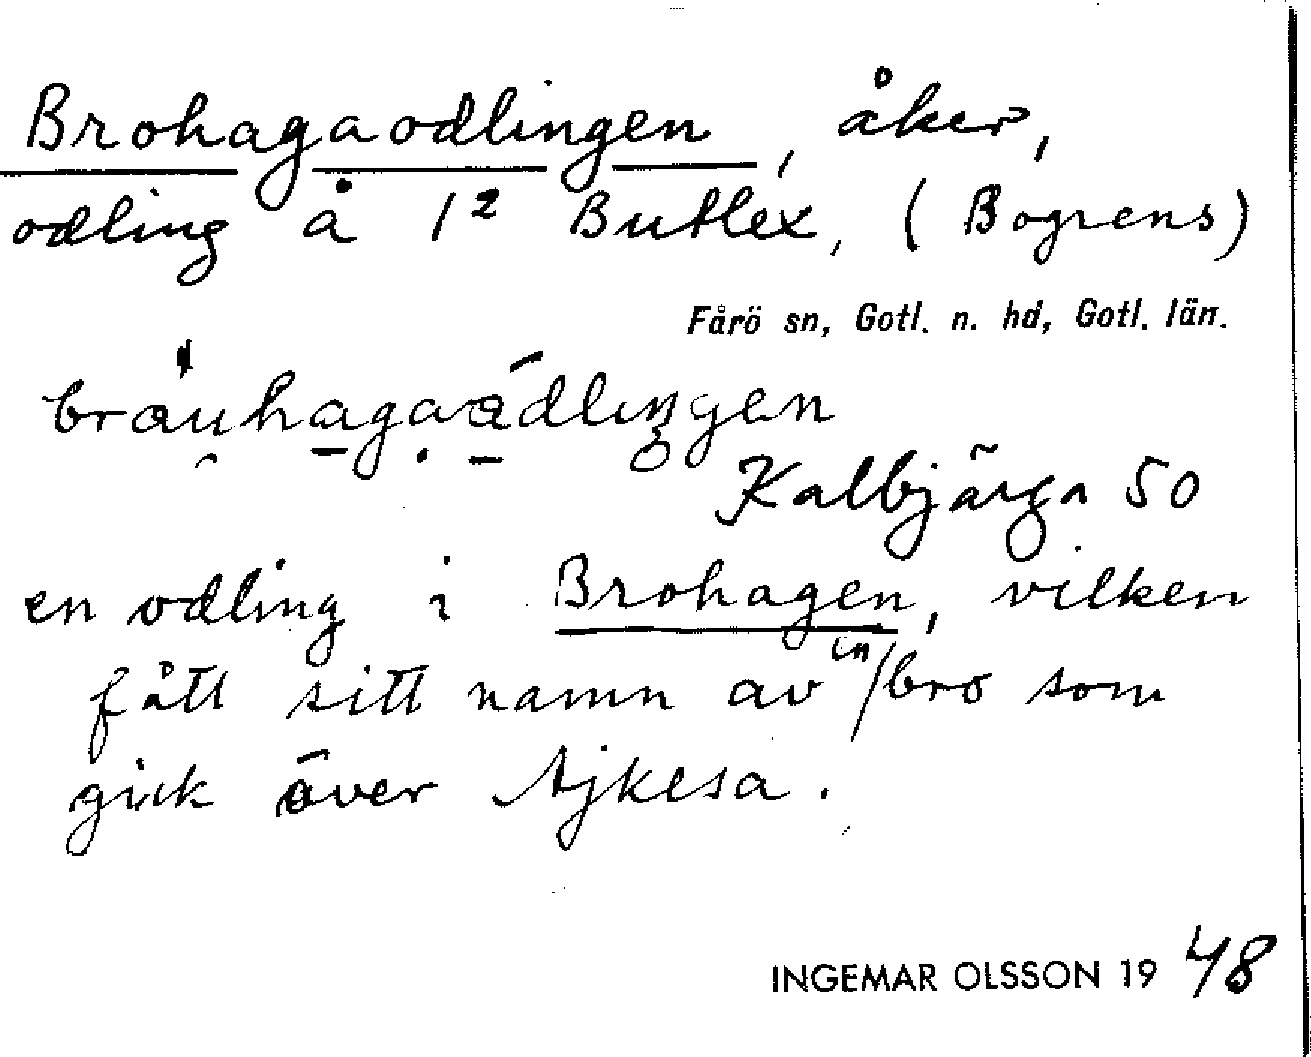 Brohagaodlingen, åker,
odling å 1² Butlex, (Bogrens)
Fårö sn, Gotl. n. hd, Gotl. län.
bräuhagaådlingen
Kalbjärga 50
en odling i Brohagen, vilken
fått sitt namn av en bro som
gick över Ajkesa.
INGEMAR OLSSON 1948